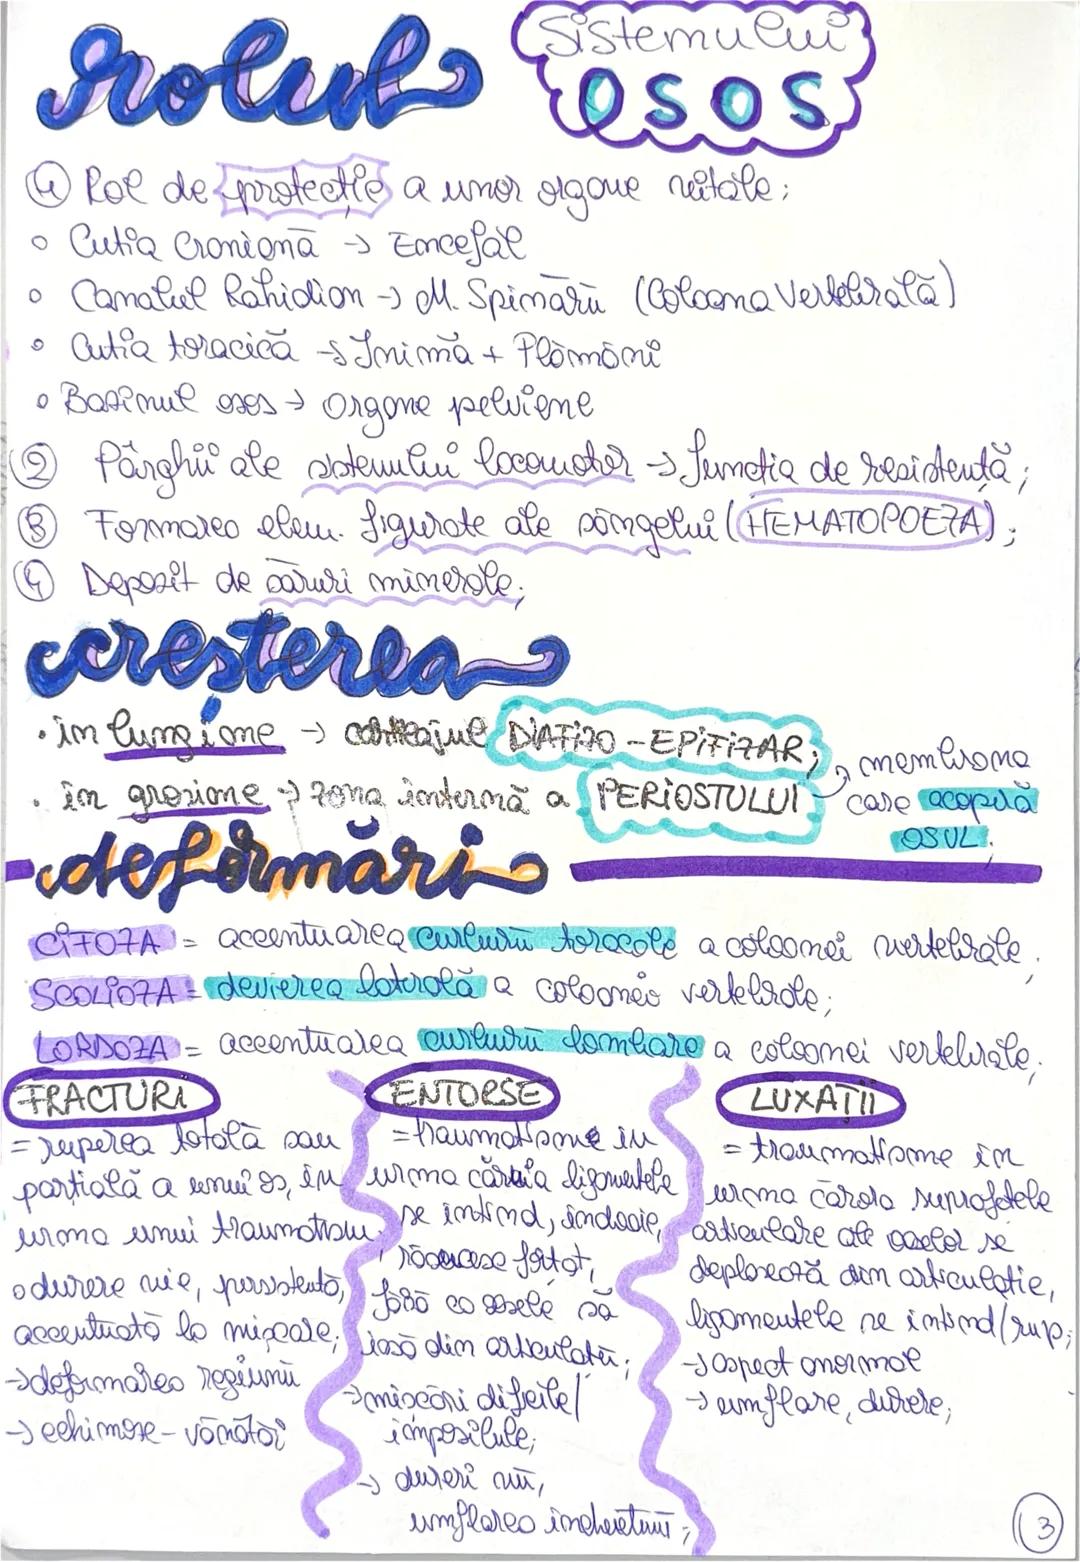 rolul
Sistemului
OSOS
① Rol de protecție a unor organe vitale;
○ Cutia Craniană → Encefal
○ Canalul Rahidian → M. Spinării (Coloana Vertebrală)
○ Cutia toracică → Inimă + Plămâni
○ Bazinul osos → Organe pelviene
② Pârghii ale sistemului locomotor → funcția de rezistență;
③ Formarea elem. figurate ale sângelui (HEMATOPOEZA);
④ Depozit de săruri minerale;
creșterea
• în lungime → cartilajul DIAFIZO-EPIFIZAR;
• în grosime → zona internă a PERIOSTULUI → membrana
care acoperă
OSUL;
deformări
CIFOZA = accentuarea curburii toracale a coloanei vertebrale;
SCOLIOZA = devierea laterală a coloanei vertebrale;
LORDOZA = accentuarea curburii lombare a coloanei vertebrale;
FRACTURI
= ruperea totală sau
parțială a unui os, în
urma unui traumatism
○ durere vie, persistentă,
accentuată la mișcare;
→ deformarea regiunii
→ echimoze - vânătăi
ENTORSE
= traumatisme în
urma căruia ligamentele
se întind, îndoaie,
răsucesc forțat,
fără ca oasele să
iasă din articulație;
→ mișcări dificile/
imposibile;
→ dureri vii,
umflarea încheieturii;
LUXAȚII
= traumatisme în
urma cărora suprafețele
articulare ale oaselor se
deplasează din articulație,
ligamentele se întind/rup;
→ aspect anormal
→ umflare, durere;
3